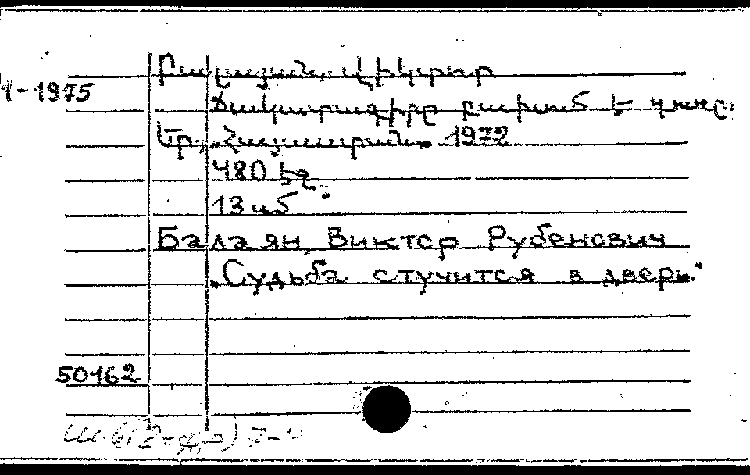 Բալայան, Վիկտոր
1-1975
Ճակատագիրը բախում է դուռը:
Եր., „Հայաստան" 1972
480 էջ
13 սմ
Балаян, Виктор Рубенович
„Судьба стучится в дверь."
50162